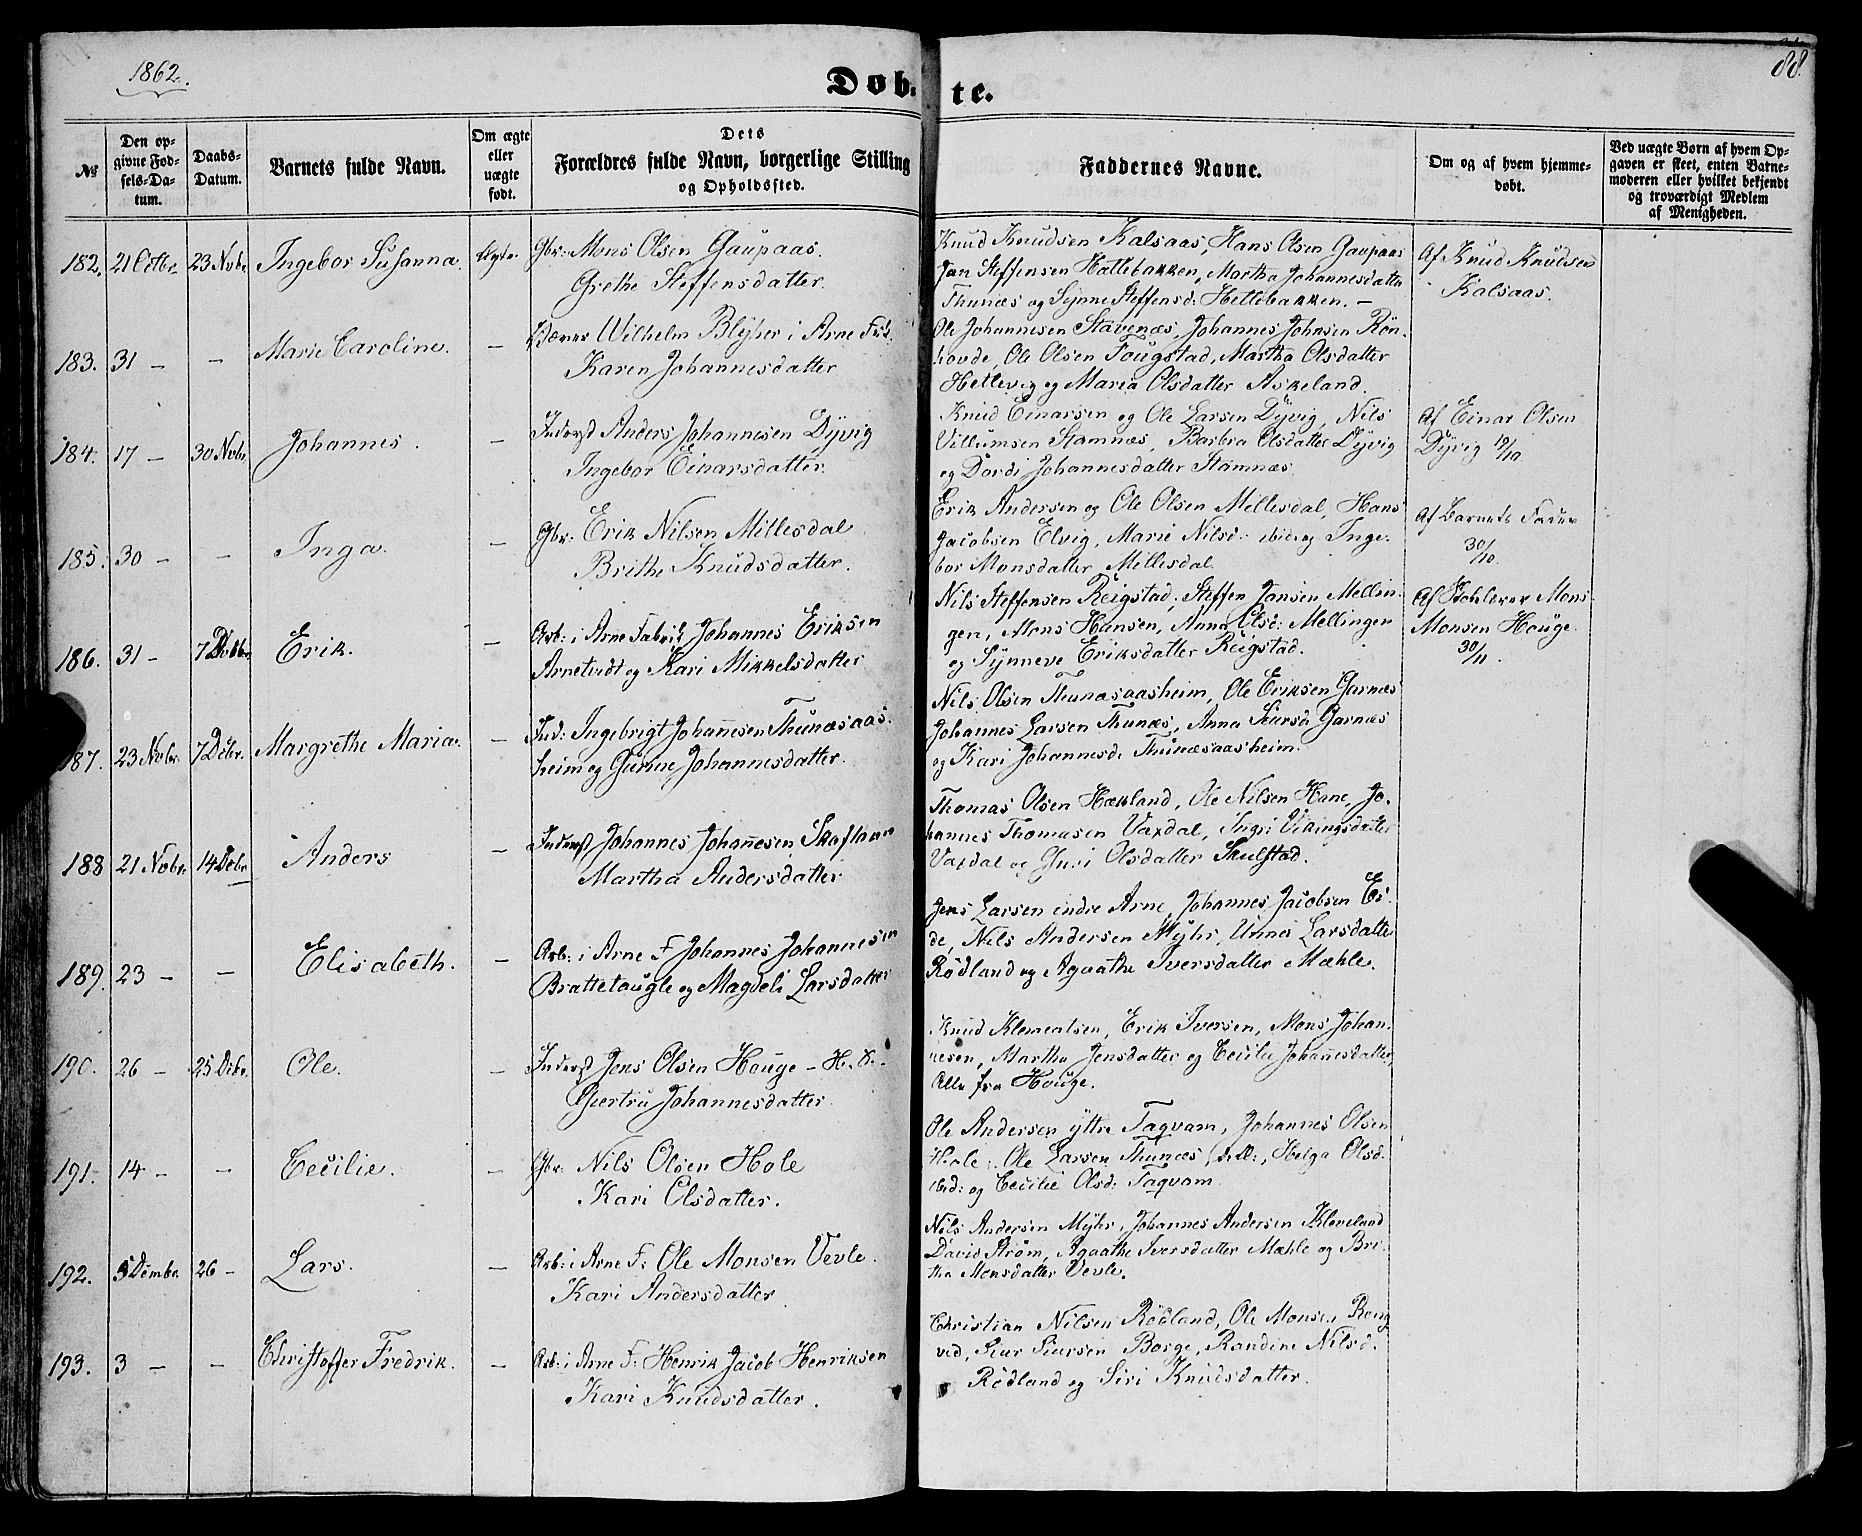 1862.
88.
Døb- te.
№
Den op-
givne Fød-
sels-Da-
tum.
Daabs-
Datum.
Barnets fulde Navn.
Om ægte
eller
uægte
født.
Dets
Forældres fulde Navn, borgerlige Stilling
og Opholdssted.
Faddernes Navne.
Om og af hvem hjemme-
døbt.
Ved uægte Børn af hvem Op-
gaven er skeet, enten Barne-
moderen eller hvilket bekjendt
og troværdigt Medlem
af Menigheden.
182. 21 Octbr. 23 Novbr. Ingebor Susanna. Ægte. Gbr: Mons Olsen Gaupaas.
Grethe Steffensdatter.
Knud Knudsen Kalsaas, Hans Olsen Gaupaas
Jan Steffensen Hattebakken, Martha Johannesdatter
Thunæs og Synne Steffensd: Hettebakken. –
Af Knud Knudsen
Kalsaas.
183. 31 – – Marie Caroline. – Wilhelm Blyher i Arne Fbk.
Karen Johannesdatter
Ole Johannesen Stavenæs, Johannes Johnsen Røn-
hovde, Ole Olsen Fougstad, Martha Olsdatter
Hellevig og Maria Olsdatter Askeland.
184. 17 – 30 Novbr. Johannes. – Inderst Anders Johannesen Dyvig
Ingebor Einarsdatter.
Knud Einarsen og Ole Larsen Dyvig, Nils
Villumsen Stamnæs, Barbra Olsdatter Dyvig
og Dordi Johannesdatter Stamnæs.
Af Einar Olsen
Dyvig 19/10.
185. 30 – – Inga. – Gbr: Erik Nilsen Millesdal
Brithe Knudsdatter.
Erik Andersen og Ole Olsen Mellesdal, Hans
Jacobsen Elvig, Marie Nilsd: ibid: og Inge-
bor Monsdatter Millesdal.
Af Barnets Fader
30/10.
186. 31 – 7 Debr. Erik. – Arb: i Arne Fabrik Johannes Eriksen
Arnetvedt og Kari Mikkelsdatter
Nils Steffensen Reigstad, Steffen Jansen Mellin-
gen, Mons Hansen, Anna Olsd: Mellingen
og Synneve Eriksdatter Reigstad.
Af Skolelærer Mons
Monsen Houge.
30/11.
187. 23 Nobr. 7 Debr. Margrethe Maria. – Ind: Ingebrigt Johannesen Thunæsaas-
heim og Gurine Johannesdatter.
Nils Olsen Thunæsaasheim, Ole Eriksen Garnæs
Johannes Larsen Thunæs, Anna Siursd Garnæs
og Kari Johannesd: Thunæsaasheim.
188 21 Nobr. 14 Debr. Anders – Inderst Johannes Johannesen Skaftaa
Martha Andersdatter
Thomas Olsen Hækland, Ole Nilsen Hane, Jo-
hannes Thomasen Vaxdal, Ingri Vikingsdatter
Vaxdal og Guri Olsdatter Skulstad.
189. 23 – – Elisabeth. – Arb: i Arne F. Johannes Johannesen
Brattetougle og Magdeli Larsdatter
Jens Larsen indre Arne, Johannes Jacobsen Ei-
de, Nils Andersen Myhr, Unni Larsdatter
Rødland og Agaathe Iversdatter Mæhle.
190. 26 – 25 Debr. Ole. – Inderst Jens Olsen Houge – H. S.
Gjertru Johannesdatter.
Knud Klementsen, Erik Iversen, Mons Johan-
nesen, Martha Jensdatter og Cecilie Johannesdatter,
Alle fra Houge.
191. 14 – – Cecilie. – Gbr: Nils Olsen Hole
Kari Olsdatter.
Ole Andersen yttre Taqvam, Johannes Olsen
Hole, Ole Larsen Thunæs, Helga Olsd:
ibid: og Cecilie Olsd: Taqvam.
192. 5 Dembr. 26 – Lars. – Arb: i Arne F: Ole Monsen Vevle.
Kari Andersdatter.
Nils Andersen Myhr, Johannes Andersen Kleveland
David Strøm, Agaathe Iversdatter Mæhle og Bri-
tha Monsdatter Vevle.
193. 3 – – Christoffer Fredrik. – Arb: i Arne F: Henrik Jacob Henriksen
Kari Knudsdatter.
Christian Nilsen Rødland, Ole Monsen Rong-
ved, Siur Siursen Borge, Randine Nilsd.
Rødland og Siri Knudsdatter.